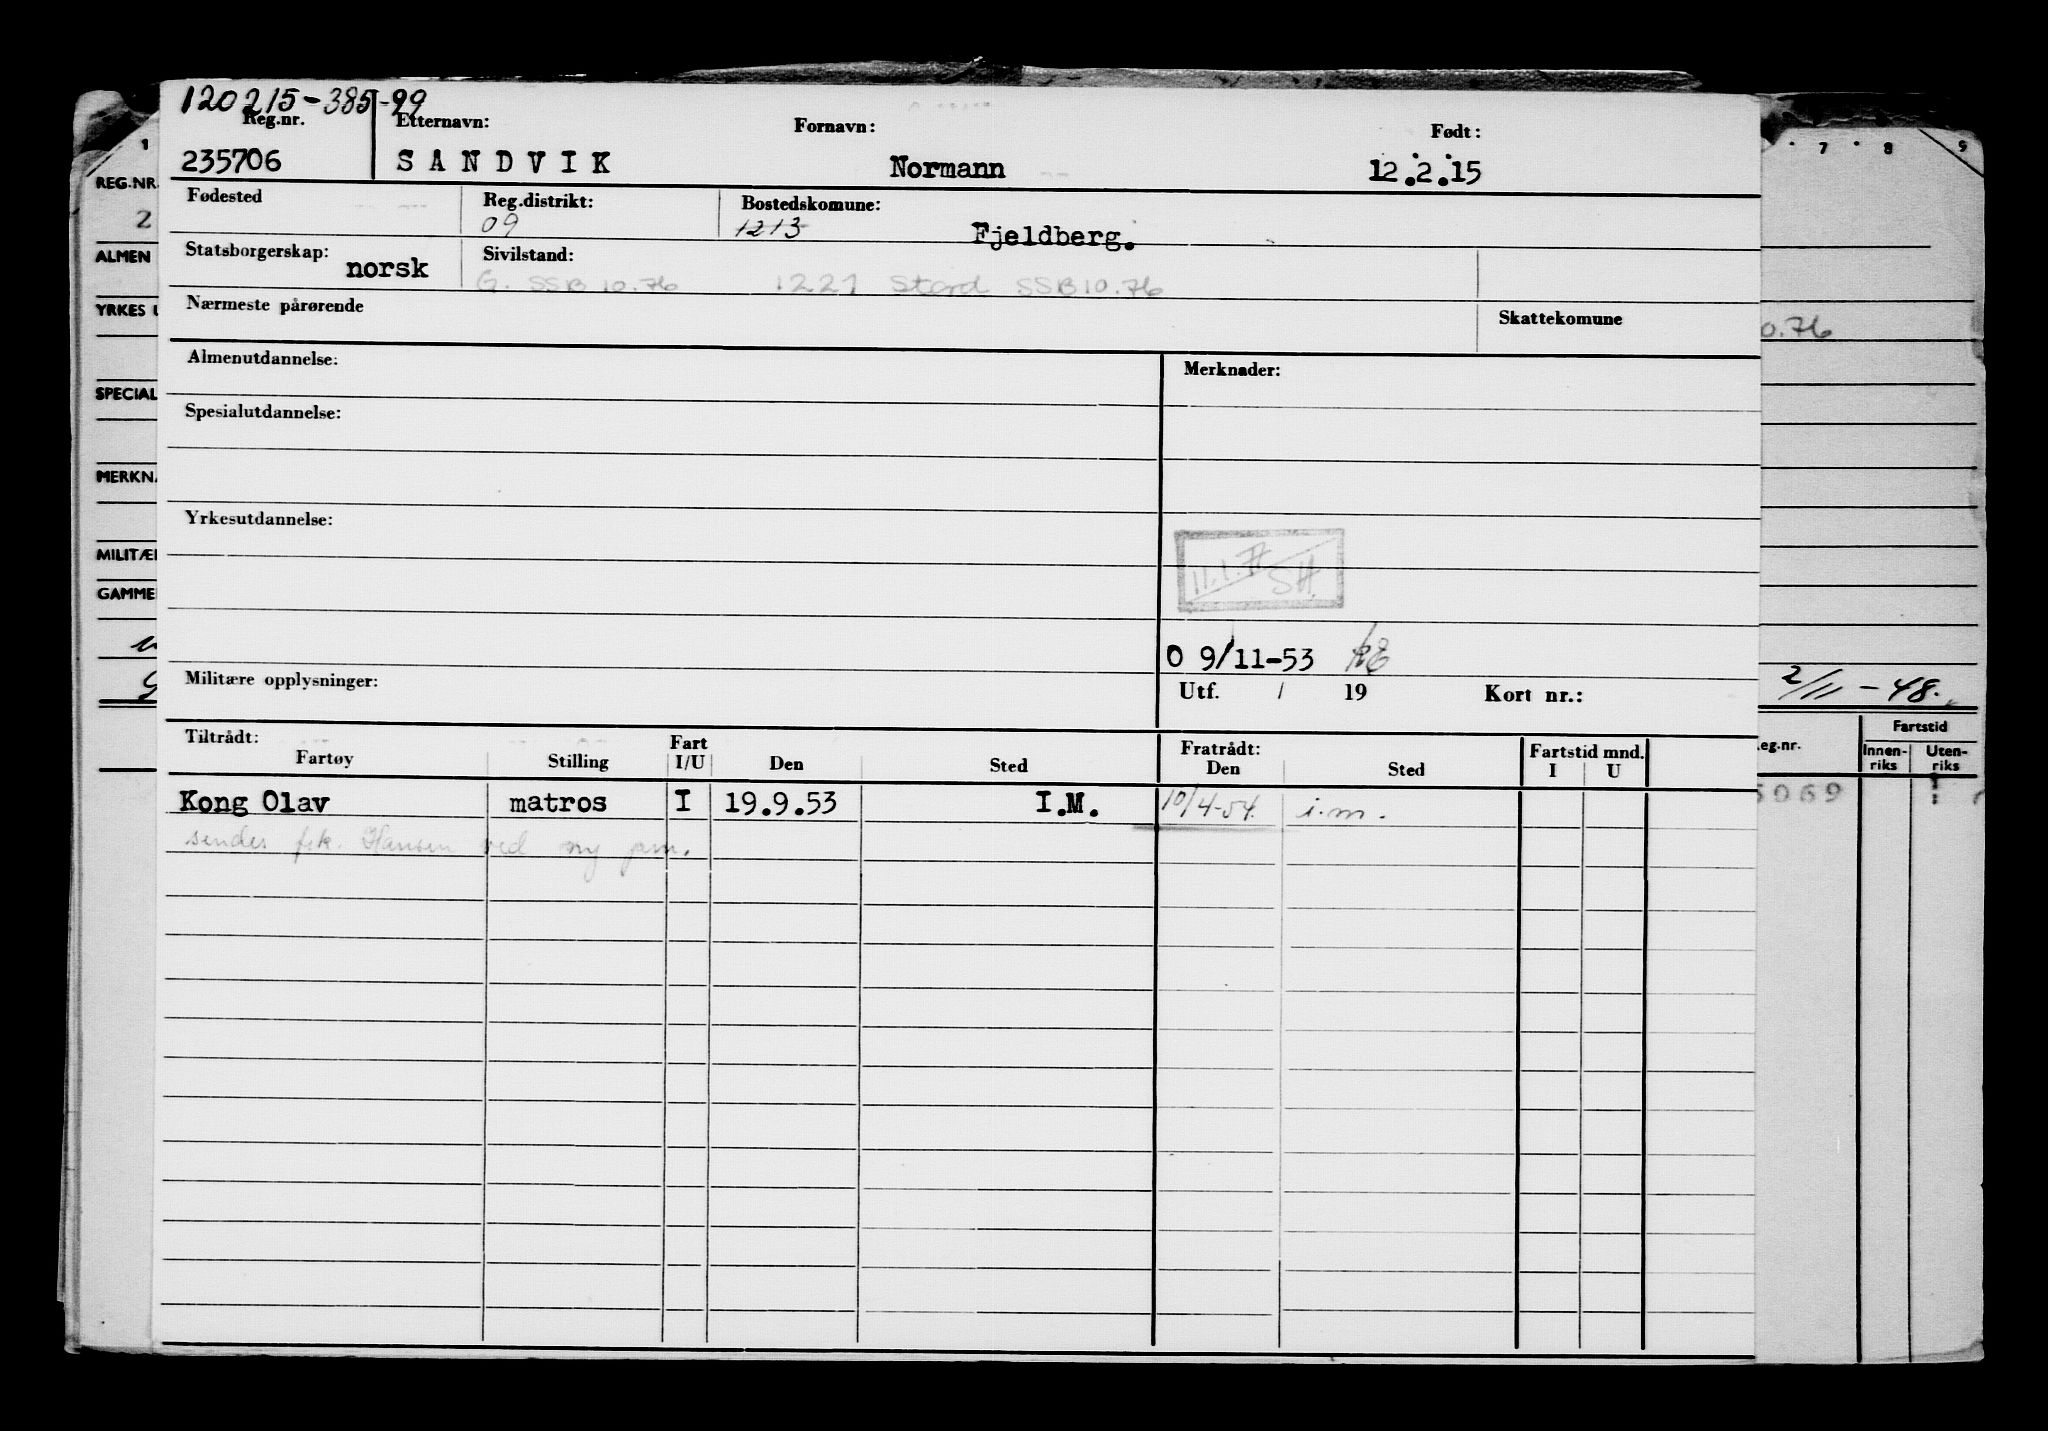 120215-385-99
Reg.nr. Etternavn: Fornavn: Født:
235706 SANDVIK Normann 12.2.15
Fødested Reg.distrikt: Bostedskomune:
09 1213 Fjeldberg.
Statsborgerskap: norsk Sivilstand:
G. SSB 10.76 1221 Stord SSB 10.76
Nærmeste pårørende Skattekomune
Almenutdannelse: Merknader:
Spesialutdannelse:
Yrkesutdannelse:
11.1.77 SH.
O 9/11-53
Militære opplysninger: Utf. / 19 Kort nr.:
Tiltrådt: Fratrådt:
Fartøy Stilling Fart I/U Den Sted Den Sted Fartstid mnd. I U
Kong Olav matros I 19.9.53 I.M. 10/4-54. i.m.
sendes frk. Hansen ved ny
1 7 8 9
REG.NR.
2
ALMEN
YRKES U
0.76
SPECIAL
MERKNA
MILITÆR
GAMMEL
2/11-48.
eg.nr. Fartstid
Innen-riks Uten-riks
5069